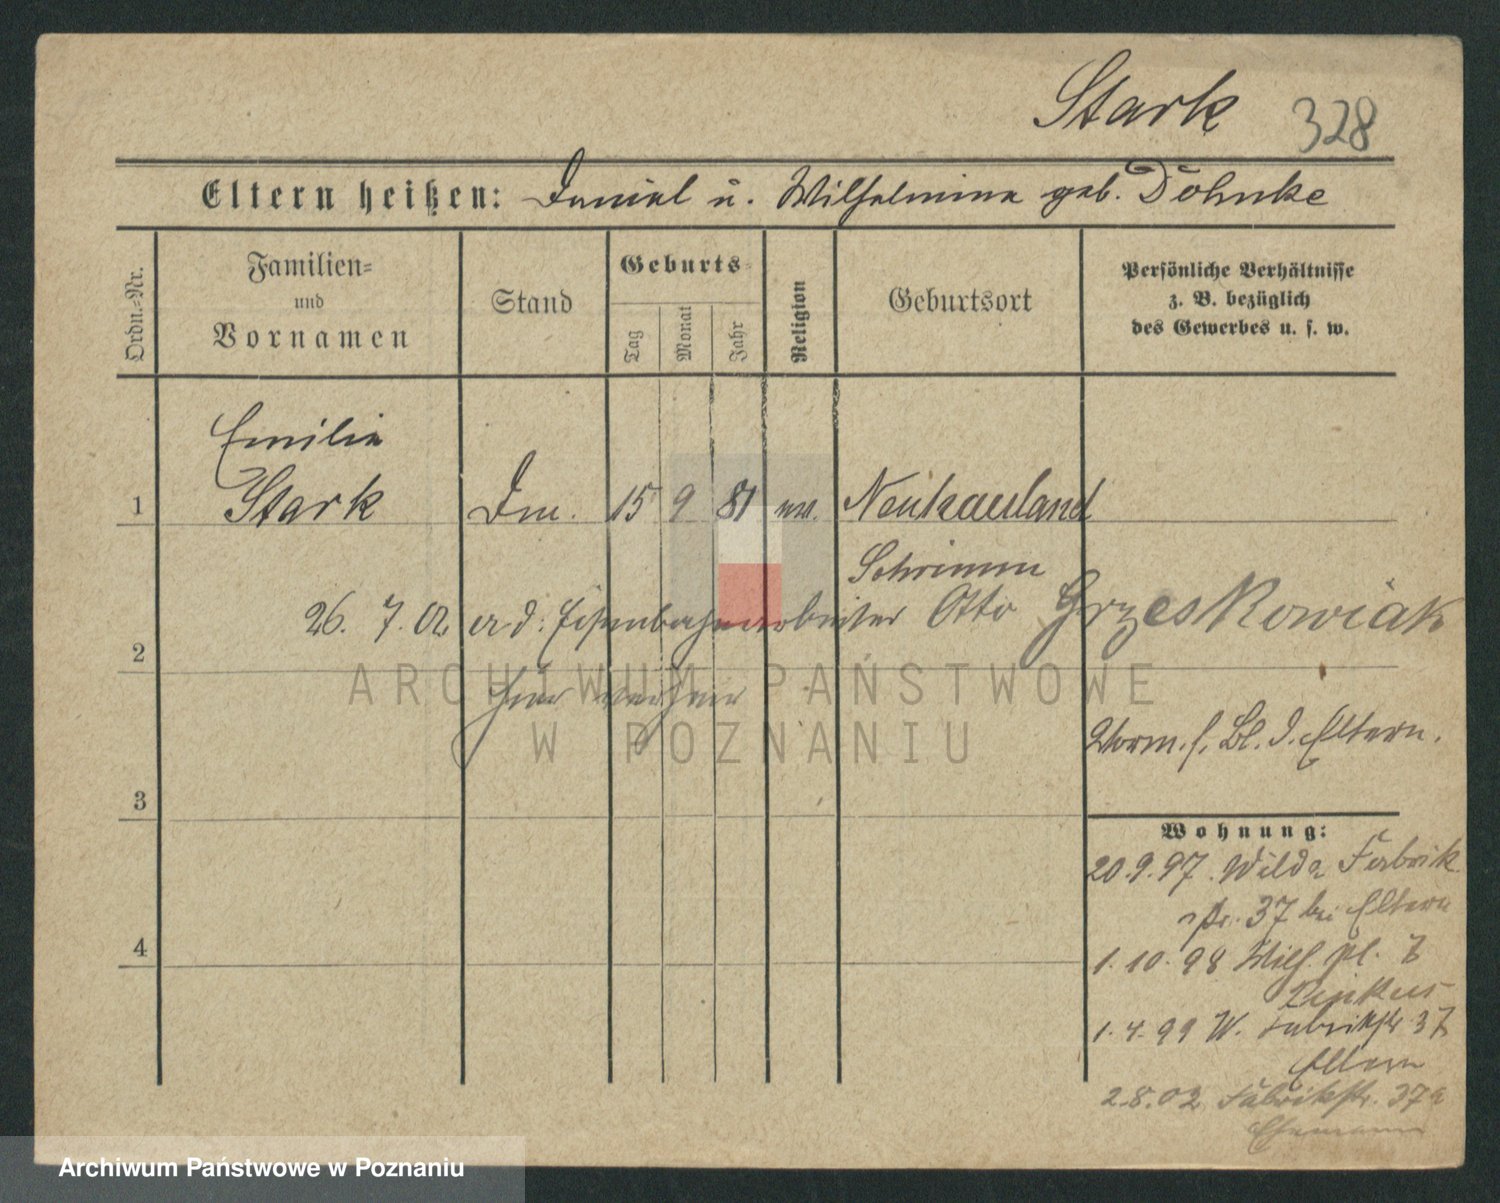 Stark 328
Eltern heißen: Daniel u. Wilhelmine geb. Dohnke
Ordn.=Nr.
Familien=
und
Vornamen
Stand
Geburts=
Tag
Monat
Jahr
Religion
Geburtsort
Persönliche Verhältnisse
z. B. bezüglich
des Gewerbes u. s. w.
Emilie
1 Stark 15 9 81 ev. Neukauland
Schrimm
26. 7. 02 a d: Eisenbahnarbeiter Otto Grzeskowiak
2
hier verheir
Vorm. s. Bl. d. Eltern.
3
Wohnung:
20.9.97. Wilda Fabrik
str. 37 bei Eltern
4
1.10.98 Wilh. pl. 7
1.4.99 W. Fabrikstr 37
Eltern
2.8.02 Fabrikstr. 37a
Ehemann
ARCHIWUM PAŃSTWOWE
W POZNANIU
Archiwum Państwowe w Poznaniu